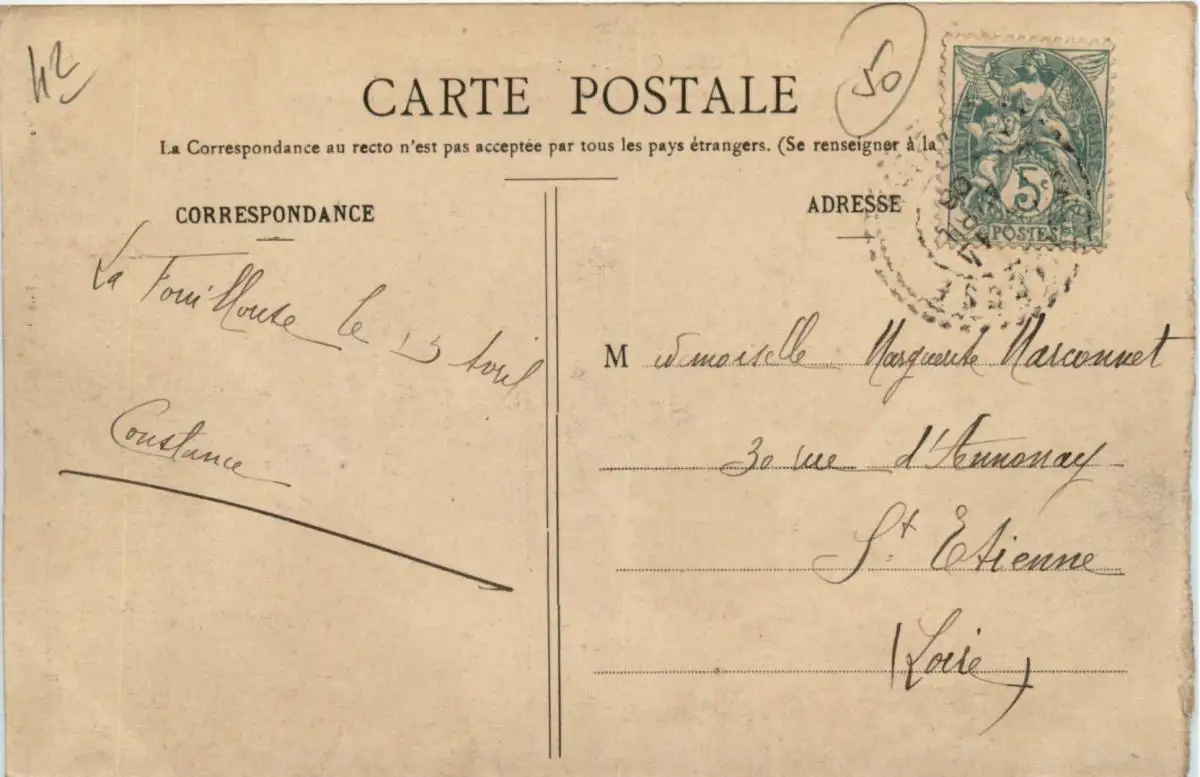 42
50
CARTE POSTALE
La Correspondance au recto n'est pas acceptée par tous les pays étrangers. (Se renseigner à la
5c
POSTES
CORRESPONDANCE
ADRESSE
La Fouillouse le 13 Avril
Constance
Mademoiselle Marguerite Marconnet
30 rue d'Annonay
St Etienne
(Loire)